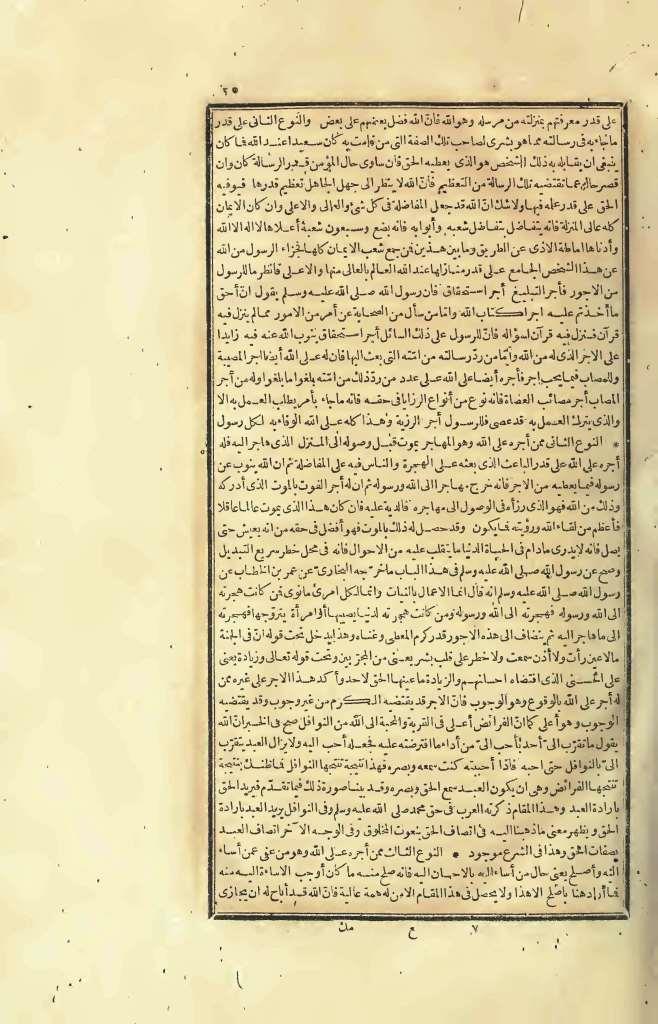 ٢٥
على قدر معرفتهم بمنزلته من مرسله وهو الله فانّ الله فضل بعضهم على بعض والنوع الثانى على قدر
ماجاء به فى رسالته مما هو بشرى لصاحب تلك الصفة التى من قامت به كان سعيدا عند الله فما كان
ينبغى ان يقابله به ذلك الشخص هو الذى يعطيه الحق فان ساوى حال المؤمن قدر الرسالة كان وان
قصر حاله عما تقتضيه تلك الرسالة من التعظيم فانّ الله لا ينظر الى جهل الجاهل بعظيم قدرها فيوفيه
الحق على قدر علمه فيها ولاشك انّ الله قد جعل المفاضلة فى كل شئ والعالى والاعلى وان كان الايمان
كله عالى المنزلة فانه يتفاضل بتفاضل شعبه وأبوابه فانه بضع وسبعون شعبة أعلاها لا اله الا الله
وأدناها اماطة الاذى عن الطريق وما بين هذين فمن جمع شعب الايمان كلها فجزاء الرسول من الله
عن هذا الشخص الجامع على قدر منازلها عند الله العالم بالعالى منها والاعلى فانظر ما للرسول
من الاجور فأجر التبليغ أجر استحقاق فان رسول الله صلى الله عليه وسلم يقول انّ أحق
ما أخذتم عليه اجرا كتاب الله وأمّا من سأل من الصحابة عن أمر من الامور مما لم ينزل فيه
قرآن فنزل فيه قرآن لسؤاله فانّ للرسول على ذلك السائل أجر استحقاق ينوب الله عنه فيه زايدا
على الاجر الذى له من الله وأمّا من ردّ رسالته من امّته التى بعث اليها فانّ له على الله أيضا اجر المصيبة
وللمصاب فيما يحب اجر فأجره أيضا على الله على عدد من ردّ ذلك من امّته بلغوا ما بلغوا وله من أجر
المصاب أجر مصائب العصاة فانه نوع من أنواع الرزايا فى حقه فانه ماجاء بأمر يطلب العمل به الا
والذى يترك العمل به قد عصى فللرسول أجر الرزية وهذا كله على الله الوفاء به لكل رسول
* النوع الثانى ممن أجره على الله وهو المهاجر يموت قبل وصوله الى المنزل الذى هاجر اليه فله
أجره على الله على قدر الباعث الذى بعثه على الهجرة والناس فيه على المفاضلة ثم ان الله ينوب عن
رسوله فيما يعطيه من الاجر فانه خرج مهاجرا الى الله ورسوله ثم ان له أجر الفوت بالموت الذى أدركه
وذلك من الله فهو الذى رزأه فى الوصول الى مهاجره فالدية عليه فان كان هذا الذى يموت عالما عاقلا
فأعظم من لقاء الله ورؤيته فما يكون وقد حصل له ذلك بالموت فهو أفضل فى حقه من انه يعيش حتى
يصل فانه لا يدرى مادام فى الحياة الدنيا ما يتقلب عليه من الاحوال فانه فى محل خطر سريع التبديل
وصح عن رسول الله صلى الله عليه وسلم فى هذا الباب ما خرّجه البخارىّ عن عمر بن الخطاب عن
رسول الله صلى الله عليه وسلم انه قال انما الاعمال بالنيات وانما لكل امرئ ما نوى فمن كانت هجرته
الى الله ورسوله فهجرته الى الله ورسوله ومن كانت هجرته لدنيا يصيبها أو امرأة يتزوجها فهجرته
الى ما هاجر اليه ثم ينضاف الى هذه الاجور قدر كرم المعطى وغناه وهذا يدخل تحت قوله انّ فى الجنة
مالاعين رأت ولا أذن سمعت ولا خطر على قلب بشر يعنى من المجرّبين وتحت قوله تعالى وزيادة يعنى
على الحسنى الذى اقتضاه احسانهم والزيادة ماعينها الحق لاحد وأكد هذا الاجر على غيره ممن
له أجر على الله بالوقوع وهو الوجوب فانّ الاجر قد يقتضيه الكرم من غير وجوب وقد يقتضيه
الوجوب وهو أعلى كما انّ الفرائض أعلى فى القربة والمحبة الى الله من النوافل صح فى الخبر انّ الله
يقول ما تقرّب الىّ أحد بأحب الىّ من أداء ما افترضته عليه فجعله أحب اليه ولا يزال العبد يتقرّب
الىّ بالنوافل حتى احبه فاذا أحببته كنت سمعه وبصره فهذا نتيجة نتيجتها النوافل فما ظنك بنتيجة
تنتجها الفرائض وهى ان يكون العبد سمع الحق وبصره وقد بينا صورة ذلك فيما تقدّم فيريد الحق
بارادة العبد وهذا المقام ذكرته العرب فى حق محمد صلى الله عليه وسلم وفى النوافل يريد العبد بارادة
الحق ويظهر معنى ما ذهبنا اليه فى اتصاف الحق بنعوت المخلوق وفى الوجه الآخر اتصاف العبد
بصفات الحق وهذا فى الشرع موجود * النوع الثالث ممن أجره على الله وهو من عفى عمن أساء
اليه وأصلح يعنى حال من أساء اليه بالاحسان اليه فانه صلح منه ما كان أوجب الاساءة اليه منه
فما أراد هنا باصلح الا هذا ولا يحصل فى هذا المقام الا من له همة عالية فانّ الله قد أباح له ان يجازى
٧ ع مك